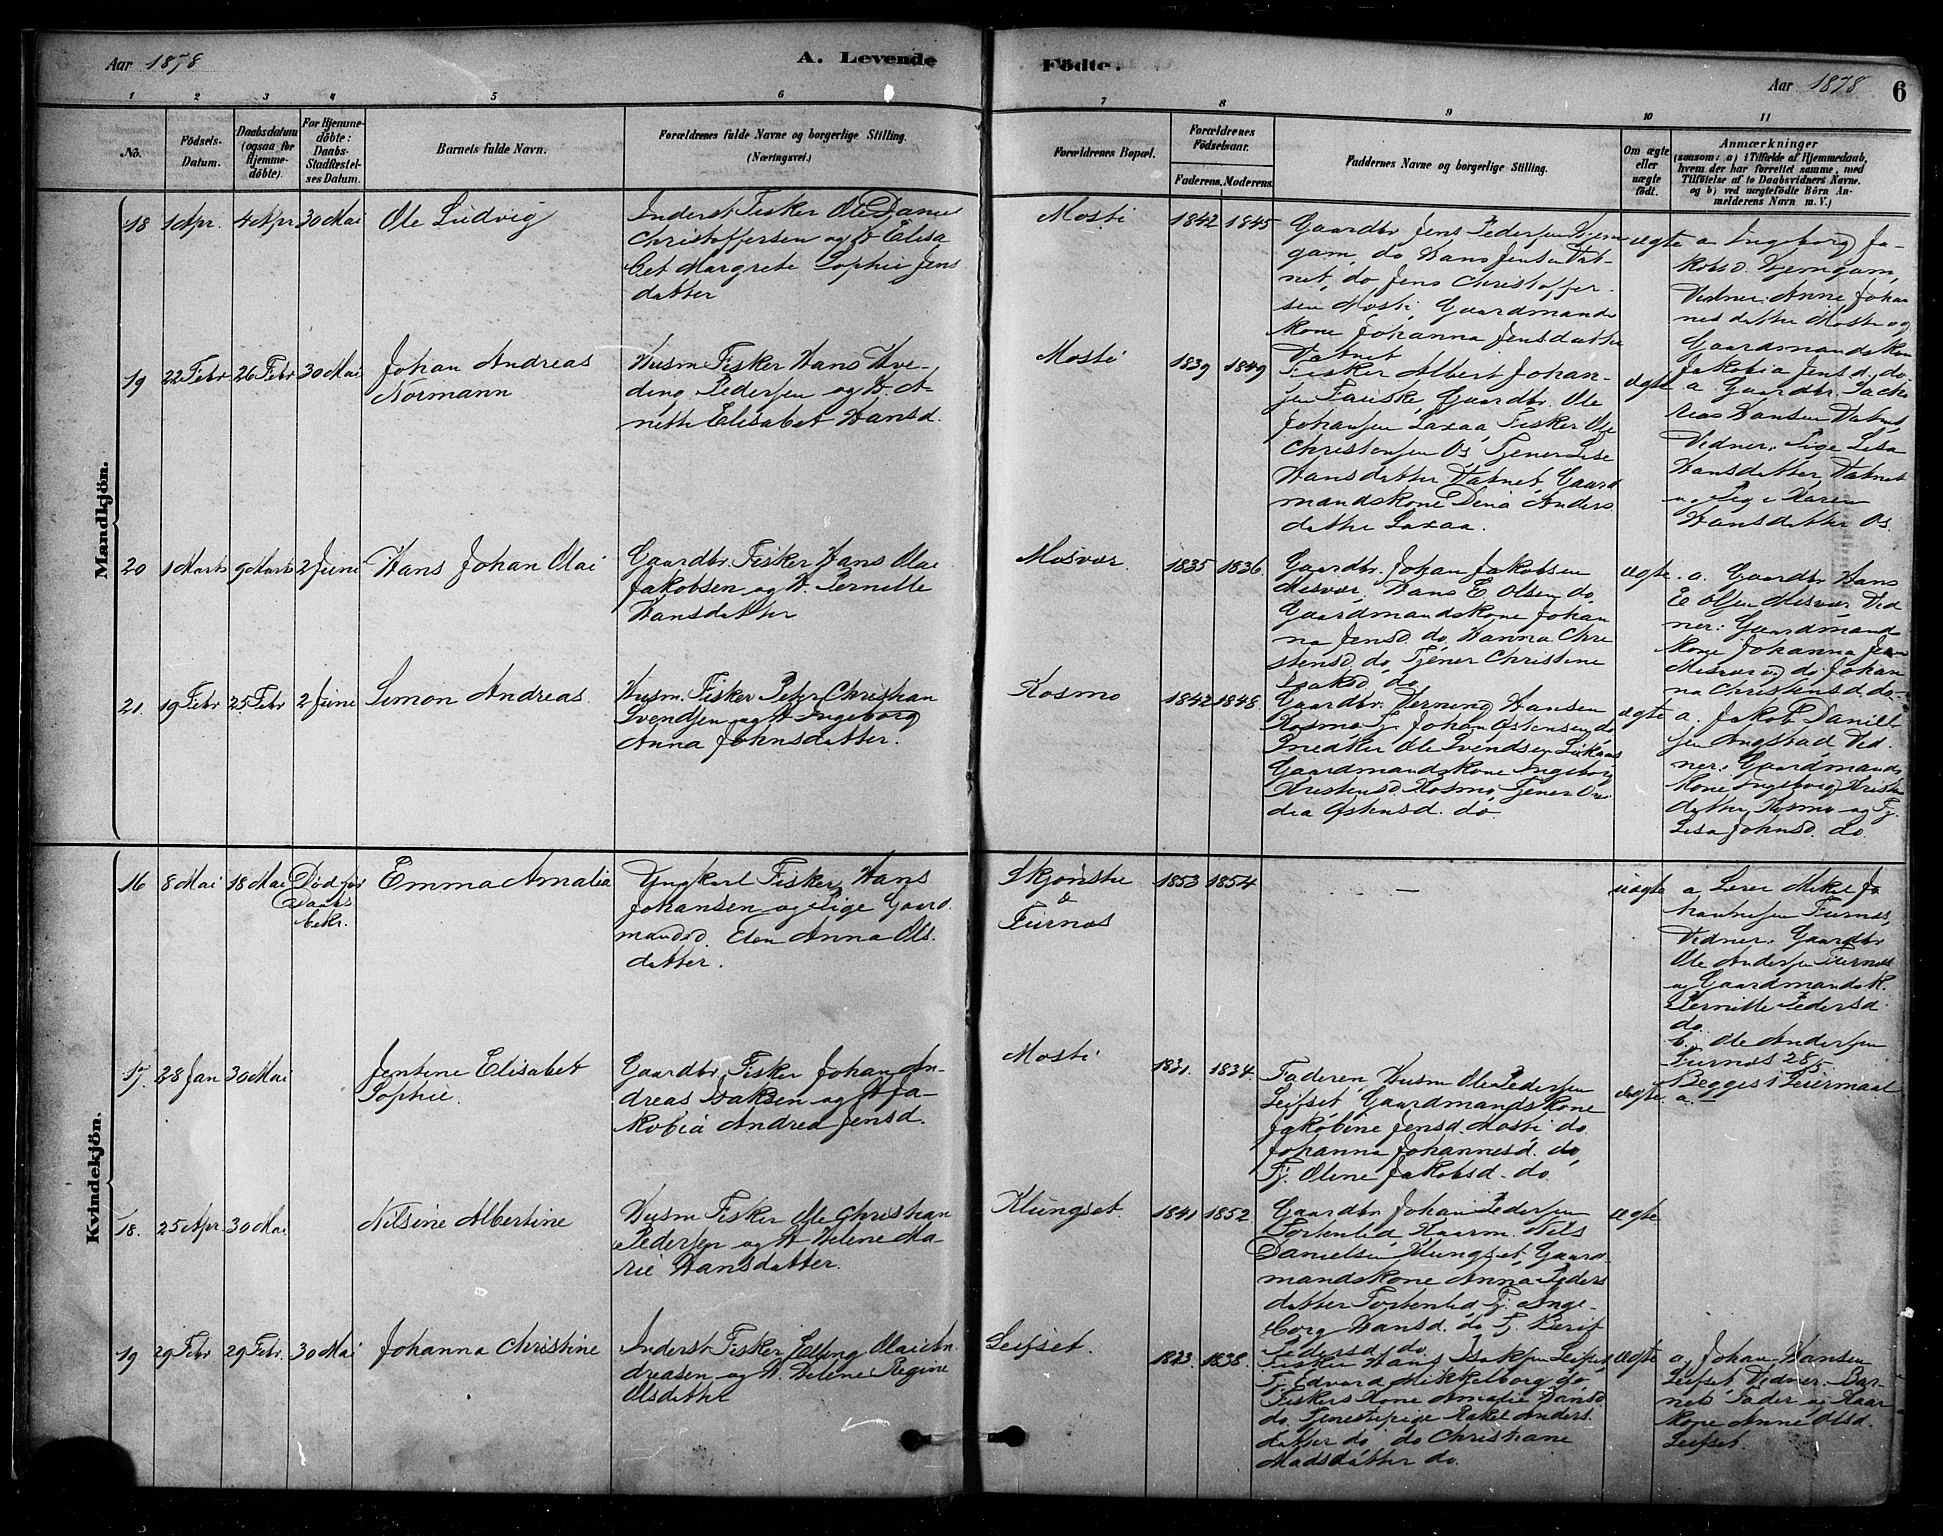 Aar 1878
A. Levende
Födte.
Aar 1878
6
1
2
3
4
5
6
7
8
9
10
11
No.
Födsels-
Datum.
Daabsdatum
(ogsaa for
Hjemme-
döbte).
For Hjemme-
döbte:
Daabs-
Stadfæstel-
ses Datum.
Barnets fulde Navn.
Forældrenes fulde Navne og borgerlige Stilling.
(Næringsvei.)
Forældrenes Bopæl.
Forældrenes
Födselsaar.
Faderens.
Moderens.
Faddernes Navne og borgerlige Stilling.
Om ægte
eller
uægte
födt.
Anmærkninger
(saasom: a) i Tilfælde af Hjemmedaab,
hvem der har forrettet samme, med
Tilföielse af to Daabsvidners Navne.
og b) ved uægtefödte Börn An-
melderens Navn m. V.)
Mandkjön.
18
1 Apr.
4 Apr
30 Mai
Ole Ludvig
Inderst Fisker Ole Daniel
Christoffersen og H. Elisa
bet Margrete Sophie Jens
datter
Mosti
1842
1845
Gaardbr Jens Pedersen Hjem
gam, do Hans Jensen Vat-
net, do Jens Christoffer-
sen Mosti, Gaardmands
kone Johanna Jensdatter
Vatnet
ægte
a. Ingeborg Ja-
kobsd. Hjemgam,
Vidner: Anne Johan
nesdatter Mosti og
Gaardmandskon
Jakobia Jensd. do
19
22 Febr
26 Febr
30 Mai
Johan Andreas
Normann
Husm Fisker Hans Hve-
ding Pedersen og H. A-
nette Elisabet Hansd.
Mosti
1839
1849
Fisker Albert Johan-
sen Fauske, Gaardbr. Ole
Johansen Laxaa, Fisker Ole
Christensen Os Tjener Lise
Hansdatter Vatnet, Gaard
mandskone Dina Anders
datter Laxaa.
ægte
a. Gaardbr. Zacha
rias Hansen Vatnet,
Vidner: Pige Lisa
Hansdatter Vatnet
og Pige Karen
Hansdatter Os
20
1 Marts
9 Marts
2 Juni
Hans Johan Olai
Gaardbr. Fisker Hans Olai
Jakobsen og H. Pernille
Hansdatter
Misvær.
1835
1836.
Gaardbr. Johan Jakobsen
Misvær, Hans E. Olsen do,
Gaardmandskone Johan
na Jensd do. Hanna Chri
stensd. do, Tjener Christine
Isaksd. do
ægte.
a. Gaardbr Hans
E Olsen Misvær Vid
ner: Gaardmands
kone Johanna Jen
Misvær og do Johan
na Christensd. do.
21.
19 Febr
25 Febr
2 Juni
Simon Andreas.
Husm. Fisker Peter Christian
Svendsen og H Ingeborg
Anna Johnsdatter.
Kosmo
1842
1848.
Gaardbr. Herning Hansen
Kosmo Tj. Johan Ostensen do,
Snedker Ole Svendsen Likaas
Gaardmandskone Ingeborg
Kristensd Kosmo, Tjener
Ostensd. do.
ægte
a. Jakob Daniel
sen Angstad Vid.
ner: Gaardmands
kone Ingeborg Kristen
datter Kosmo og Tj.
Lisa Johnsd. do.
Kvindekjön.
16
8 Mai
18 Mai
Død før
Daabs
bekr.
Emma Amalia
Ungkarl Fisker Hans
Johansen og Pige Gaard
mandsd. Elen Anna Ols.
datter.
Skjønstu
&
Furnes
1853
1854
—
uægte
a Lærer Mikal Jo
hannesen Furnes,
Vidner: Gaardbr
Ole Andersen Furnes
og Gaardmandsk.
Pernille Pedersd.
do.
b. Ole Andersen
Furnes 28/5
Begges 1 Leiermaal
17.
28 Jan
30 Mai
Jentine Elisabet
Sophie.
Gaardbr. Fisker Johan An-
dreas Isaksen og H Ja-
kobia Andrea Jensd.
Mosti
1831.
1834.
Faderen, Husm Ole Pedersen
Leifset, Gaardmandskone
Jakobine Jensd. Mosti do.
Johanna Johannesd. do,
Tj. Oline Jakobsd. do
ægte.
a. —
18.
25 Apr
30 Mai
Nilsine Albertine
Husm Fisker Ole Christian
Pedersen og H Helene Ma-
rie Hansdatter.
Klungset.
1841
1852
Gaardbr Johan Pedersen
Tortenlid, Kaarm. Nils
Danielsen Klungset, Gaard
mandskone Anna Peders
datter Tortenlid Tj. Inge-
borg Hansd. do Tj Berit
Pedersd. do.
ægte
19
29 Febr
29 Febr.
30 Mai
Johanna Christine
Inderst Fisker Elling Olai An
dreasen og H. Helene Regine
Olsdatter
Leifset.
1833.
1838.
Fisker Hans Isaksen Leifset,
Tj. Edvard Mikkelborg do,
Fiskers Kone Amalie Hansd
do, Tjenestepige Rakel Anders
datter do, do Christiane
Madsdatter do.
ægte
a. Johan Hansen
Leifset. Vidner. Bar-
nets Fader og Kaar
kone Anne Olsd.
Leifset.